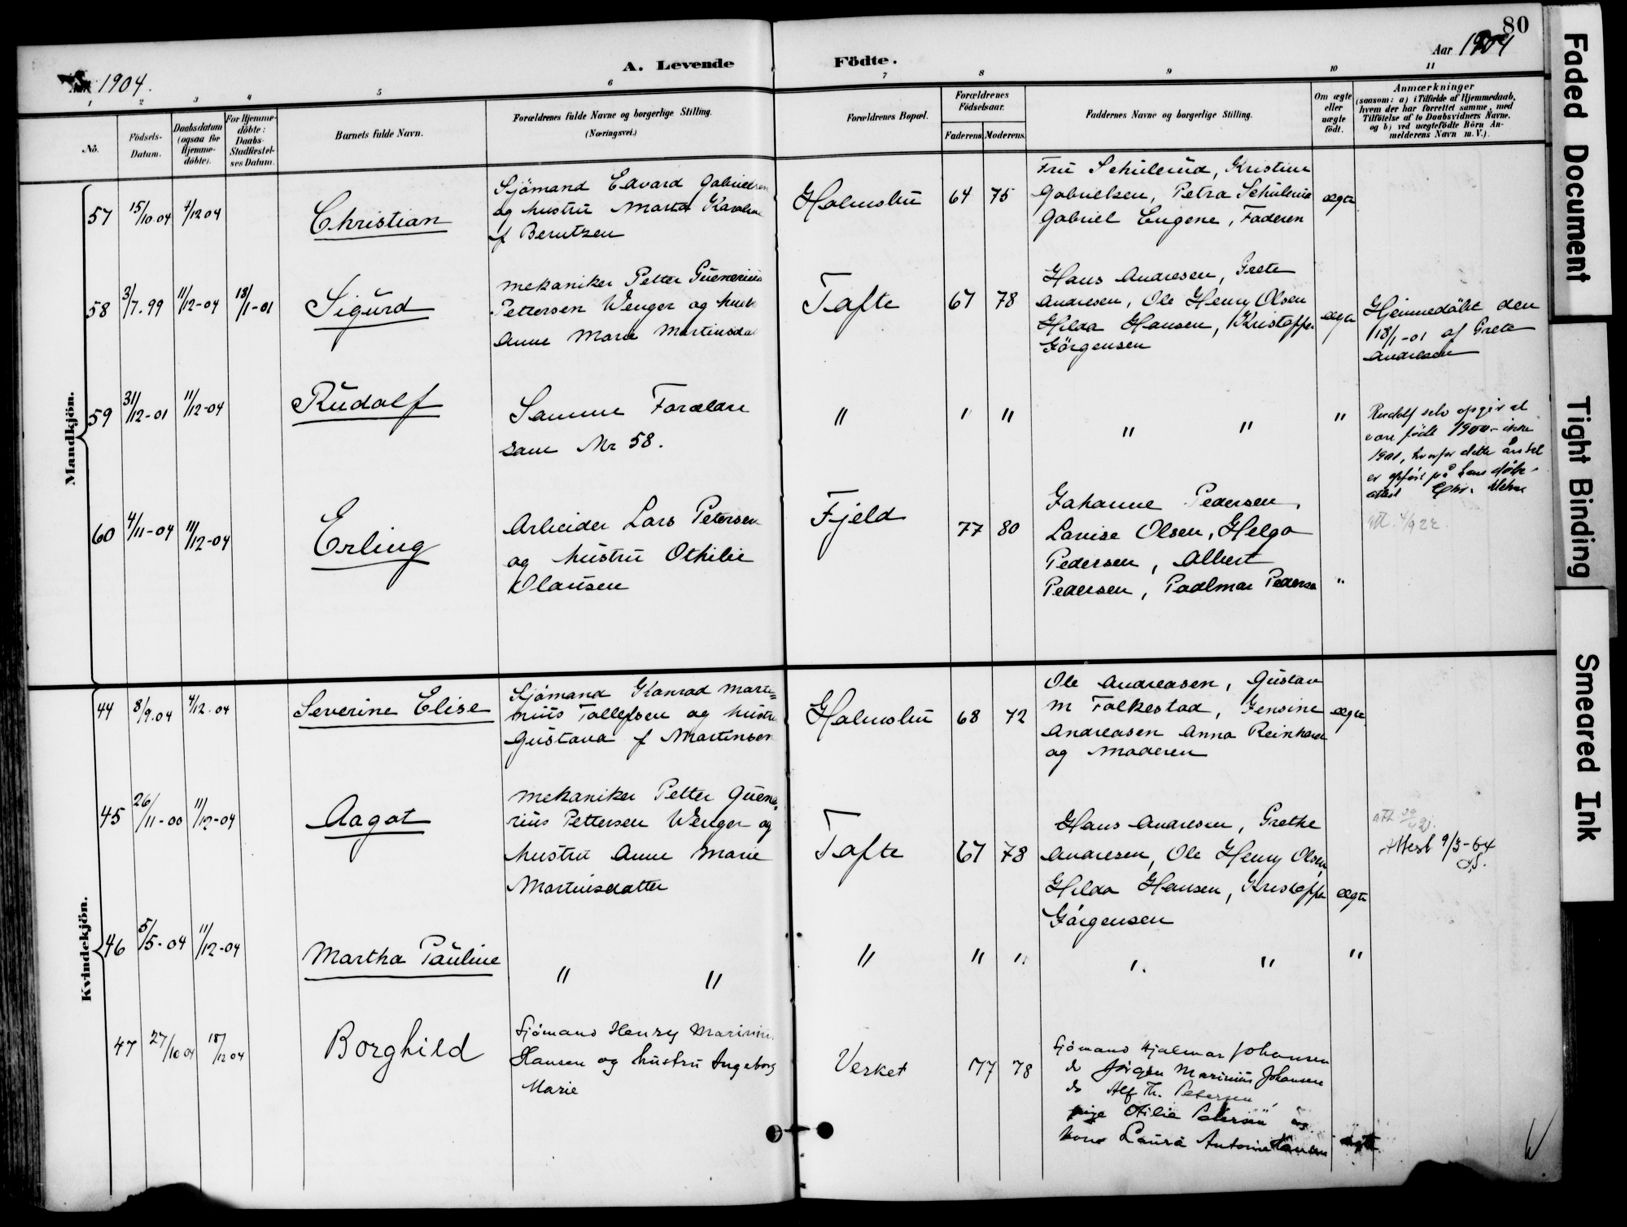 80
A. Levende Födte.
Aar 1904
1904.
1 2 3 4 5 6 7 8 9 10 11
No.
Födsels-Datum.
Daabsdatum (ogsaa för Hjemme-döbte).
For Hjemme-döbte: Daabs-Stadfæstel-ses Datum.
Barnets fulde Navn.
Forældrenes fulde Navne og borgerlige Stilling. (Næringsvei.)
Forældrenes Bopæl.
Forældrenes Födselsaar.
Faderens. Moderens.
Faddernes Navne og borgerlige Stilling.
Om ægte eller uægte födt.
Anmærkninger
(saasom: a) i Tilfælde af Hjemmedaab, hvem der har forrettet samme, med Tilföielse af to Daabsvidners Navne, og b) ved uægtefödte Börn An-melderens Navn m. V.).
Mandkjön.
57 15/10 04 4/12 04 Christian
Sjömand Edvard Gabrielsen
og hustru Marta Karoline
f Berntzen
Holmsbu 64 75
Fru Schulerud, Kristine
Gabrielsen, Petra Schulerud
Gabriel Eugene, Faderen
ægte
58 3/7.99 11/12-04 18/1-01 Sigurd
Mekaniker Petter Guenerius
Pettersen Wenger og hustru
Anne Marie Martinsda
Tofte 67 78
Hans Andresen, Grete
Andresen, Ole Henry Olsen
Hilda Hansen, Kristoffer
Görgensen
ægte
Hjemmedöbt den
18/1-01 af Grete
Andresen
59 31/12-01 11/12-04 Rudolf
Samme Forældre
som Nr 58.
" " " " " "
Rudolf selv opgir at
være födt 1900 - ikke
1901, hvorfor dette årstal
er opfört på hans döbe-
attest
60 4/11-04 11/12-04 Erling
Arbeider Lars Petersen
og hustru Othilie
Olausen
Fjeld 77 80
Johanne Pedersen,
Lovise Olsen, Helga
Pedersen, Albert
Pedersen, Podlmar Pedersen "
Kvindekjön.
44 8/9.04 4/12.04 Severine Elise
Sjömand Konrad Mari=
nius Tollefsen og hustru
Gustava f Martinsen
Holmsbu 68 72
Ole Andreasen, Gustav
M Folkestad, Jensine
Andreasen Anna Reinhard
og Moderen
ægte
45 26/11-00 11/12-04 Aagot
Mekaniker Petter Guene=
rius Pettersen Wenger og
hustru Anne Marie
Martinsdatter
Tofte 67 78
Hans Andresen, Grethe
Andresen, Ole Henry Olsen
Hilda Hansen, Kristoffer
Görgensen
ægte
Attest 9/3-64
46 5/5-04 11/12-04 Martha Pauline
" " " " " " " "
47 27/10 04 18/12 04 Borghild
Sjömand Henry Marinius
Hansen og hustru Ingeborg
Marie
Verket 77 78
Sjömand Hjalmar Johansen
do Jörgen Marinius Johansen
do Alf Th. Petersen
pige Otilie Petersen og
kone Laura Antonie Hansen
ægte
Faded Document
Tight Binding
Smeared Ink